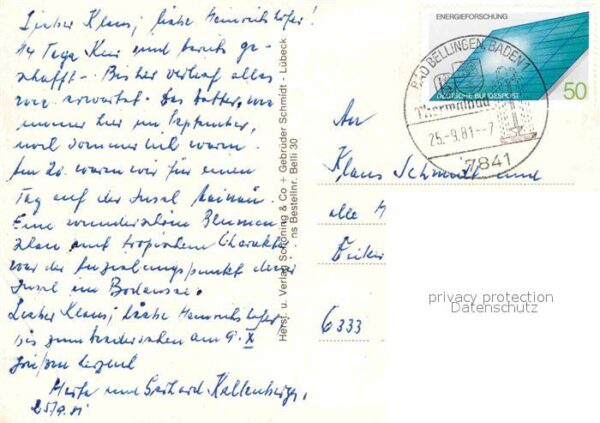 Lieber Klaus, liebe Heinrichshofer!
14 Tage Kur sind bereits ge-
schafft. Bisher verlief alles
wie erwartet. Das Wetter, wie
immer hier im September,
noch sommerlich warm.
Am 20. waren wir für einen
Tag auf der Insel Mainau.
Eine wunderschöne Blumen
mit tropischem Charakter
war der Anziehungspunkt dieser
Insel im Bodensee.
Lieber Klaus, liebe Heinrichshofer
bis zum am 9. X
grüßen herzlich
und Gerhard Kallenberger.
25/9.81
Herst. u. Verlag Schöning & Co + Gebrüder Schmidt - Lübeck
ns Bestellnr. Belli 30
ENERGIEFORSCHUNG
DEUTSCHE BUNDESPOST
50
BAD BELLINGEN, BADEN
Thermalbad
25.-9.81--7
7841
An
Klaus Schmidt und
alle H
6333
privacy protection
Datenschutz